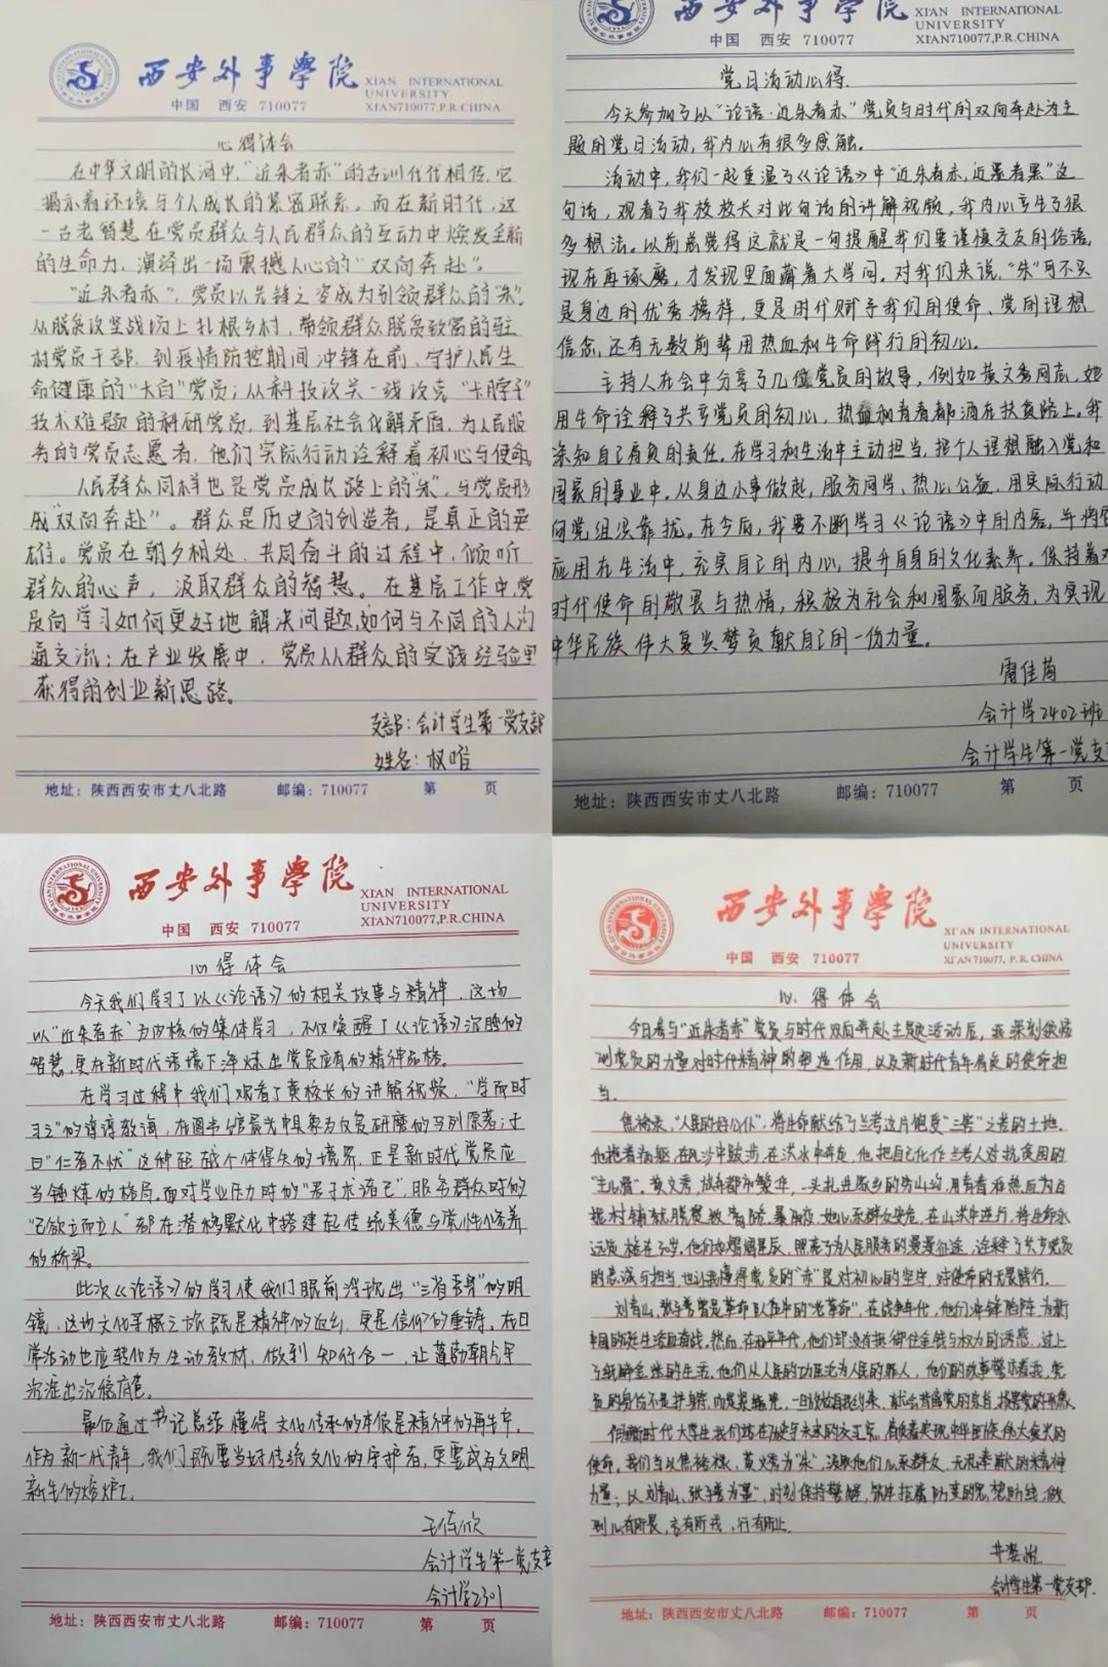 西安外事学院
XIAN INTERNATIONAL
UNIVERSITY
XIAN710077,P.R.CHINA
中国 西安 710077
心得体会
在中华文明的长河中,"近朱者赤"的古训代代相传,它
揭示着环境与个人成长的紧密联系。而在新时代,这
一古老智慧在党员群众与人民群众的互动中焕发全新
的生命力,演绎出一场震撼人心的"双向奔赴"。
"近朱者赤",党员以先锋之姿成为引领群众的"朱"。
从脱贫攻坚战场上扎根乡村,带领群众脱贫致富的驻
村党员干部,到疫情防控期间冲锋在前、守护人民生
命健康的"大白"党员;从科技攻关一线攻克"卡脖子"
技术难题的科研党员,到基层社会化解矛盾,为人民服
务的党员志愿者,他们实际行动诠释着初心与使命。
人民群众同样也是党员成长路上的"朱",与党员形
成"双向奔赴"。群众是历史的创造者,是真正的英
雄。党员在朝夕相处、共同奋斗的过程中,倾听
群众的心声,汲取群众的智慧。在基层工作中,党
员向学习如何更好地解决问题,如何与不同的人沟
通交流;在产业发展中,党员从群众的实践经验里
获得的创业新思路。
支部:会计学生第一党支部
姓名:权唯
地址:陕西西安市丈八北路 邮编:710077 第 页
西安外事学院
XIAN INTERNATIONAL
UNIVERSITY
XIAN710077,P.R.CHINA
中国 西安 710077
党日活动心得.
今天参加了以"论语·近朱者赤"党员与时代的双向奔赴为主
题的党日活动,我内心有很多感触。
活动中,我们一起重温了《论语》中"近朱者赤,近墨者黑"这
句话,观看了我校校长对此句话的讲解视频,我内心产生了很
多想法。以前总觉得这就是一句提醒我们要谨慎交友的俗语,
现在再琢磨,才发现里面藏着大学问。对我们来说,"朱"可不只
是身边的优秀榜样,更是时代赋予我们的使命、党的理想
信念,还有无数前辈用热血和生命践行的初心。
主持人在会中分享了几位党员的故事,例如黄文秀同志,她
用生命诠释了共产党员的初心,热血和青春都洒在扶贫路上。我
深知自己肩负的责任。在学习和生活中主动担当,把个人理想融入党和
国家的事业中。从身边小事做起,服务同学、热心公益,用实际行动
向党组织靠拢。在今后,我要不断学习《论语》中的内容,并将它
应用在生活中,充实自己的内心,提升自身的文化素养。保持着对
时代使命的敬畏与热情,积极为社会和国家而服务,为实现
中华民族伟大复兴梦贡献自己的一份力量。
周佳茵
会计学2402班
会计学生第一党支
地址:陕西西安市丈八北路 邮编:710077 第 页
西安外事学院
XIAN INTERNATIONAL
UNIVERSITY
XIAN710077,P.R.CHINA
中国 西安 710077
心得体会
今天我们学习了以《论语》的相关故事与精神,这场
以"近朱者赤"为内核的集体学习,不仅唤醒了《论语》沉睡的
智慧,更在新时代语境下淬炼出党员应有的精神品格。
在学习过程中我们观看了黄校长的讲解视频,"学而时
习之"的谆谆教诲,在图书馆晨光中具象为反复研磨的马列原著;子
曰"仁者不忧"这种超越个体得失的境界,正是新时代党员应
当锤炼的格局。面对学业压力时的"君子求诸己",服务群众时的
"己欲立而立人"都在潜移默化中搭建起传统美德与党性修养
的桥梁。
此次《论语》的学习使我们眼前浮现出"三省吾身"的明
镜,这场文化寻根之旅既是精神的返乡,更是信仰的重铸,在日
常活动也应转化为生动教材,做到知行合一,让蓬勃朝气
沉淀出沉稳底色。
最后通过书记总结懂得文化传承的本质是精神的再生产,
作为新一代青年,我们既要当好传统文化的守护者,更要成为文明
新生的熔炉。
王倩欣
会计学生第一党支部
会计学2301
地址:陕西西安市丈八北路 邮编:710077 第 页
西安外事学院
XI'AN INTERNATIONAL
UNIVERSITY
XI'AN 710077, P. R. CHINA
中国 西安 710077
心得体会
今日参与"近朱者赤"党员与时代双向奔赴主题活动后,我深刻领悟
到党员的力量对时代精神的塑造作用,以及新时代青年肩负的使命担
当。
焦裕禄,"人民的好公仆",将生命献给了兰考这片饱受"三害"之苦的土地。
他拖着病躯,在风沙中跋涉,在洪水中奔走,他把自己化作兰考人对抗贫困的
"主心骨"。黄文秀,放弃都市繁华,一头扎进家乡的穷山沟,用青春热血为百
坭村铺就脱贫致富路,暴雨夜她心系群众安危,在山洪中逆行,将生命永
远定格在30岁。他们如熠熠星辰,照亮了为人民服务的漫漫征途,诠释了共产党员
的忠诚与担当,也让我懂得党员的"赤"是对初心的坚守,对使命的无畏践行。
刘青山、张子善曾是革命队伍中的"老革命",在战争年代,他们冲锋陷阵,为新
中国的诞生浴血奋战。然而,在和平年代,他们却没有抵御住金钱与权力的诱惑,过上
了纸醉金迷的生活。他们从人民的功臣沦为人民的罪人,他们的故事警示着我,党
员的身份不是护身符,而是紧箍咒,一旦放松自我约束,就会背离党的宗旨,损害党的形象。
作为新时代大学生,我们站在历史与未来的交汇点,肩负着实现中华民族伟大复兴的
使命。我们当以焦裕禄、黄文秀为"朱",汲取他们心系群众、无私奉献的精神
力量;以刘青山、张子善为"墨",时刻保持警醒,筑牢拒腐防变的思想防线,做
到心有所畏,言有所戒,行有所止。
会计学生第一党支部.
地址:陕西西安市丈八北路 邮编:710077 第 页